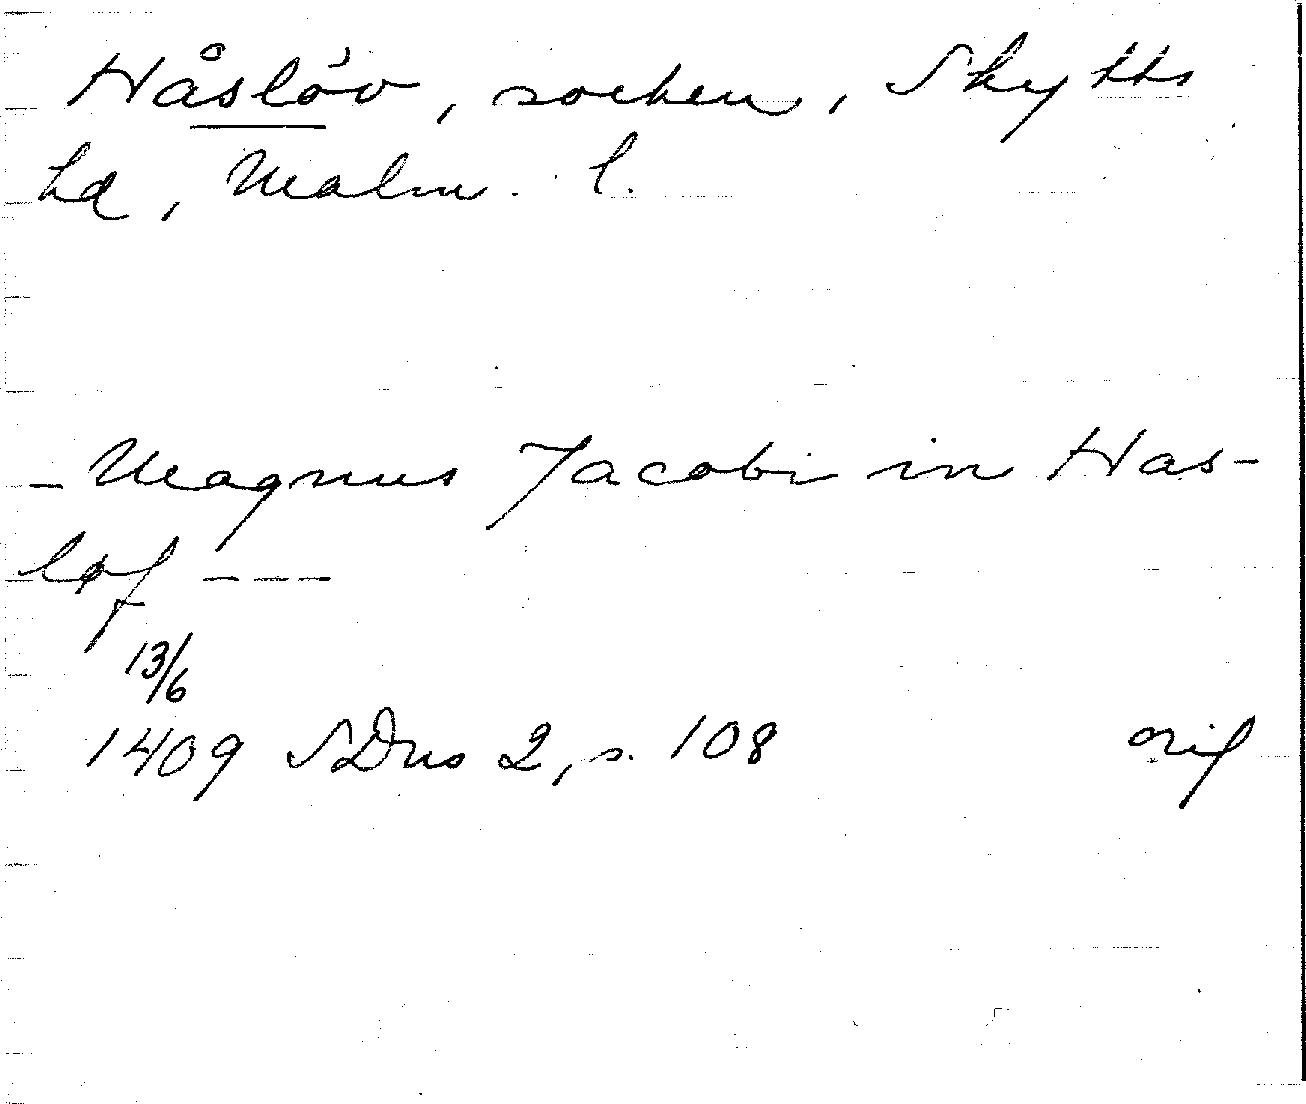 Håslöv, socken, Skytts
hd, Malm. l.
- Magnus Jacobi in Has-
løf ---
13/6
1409 SDns 2, s. 108 orig